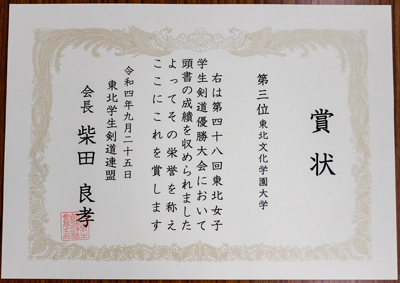 賞状
第三位 東北文化学園大学
右は第四十八回東北女子
学生剣道優勝大会において
頭書の成績を収められました
よってその栄誉を称え
ここにこれを賞します
令和四年九月二十五日
東北学生剣道連盟
会長 柴田 良孝